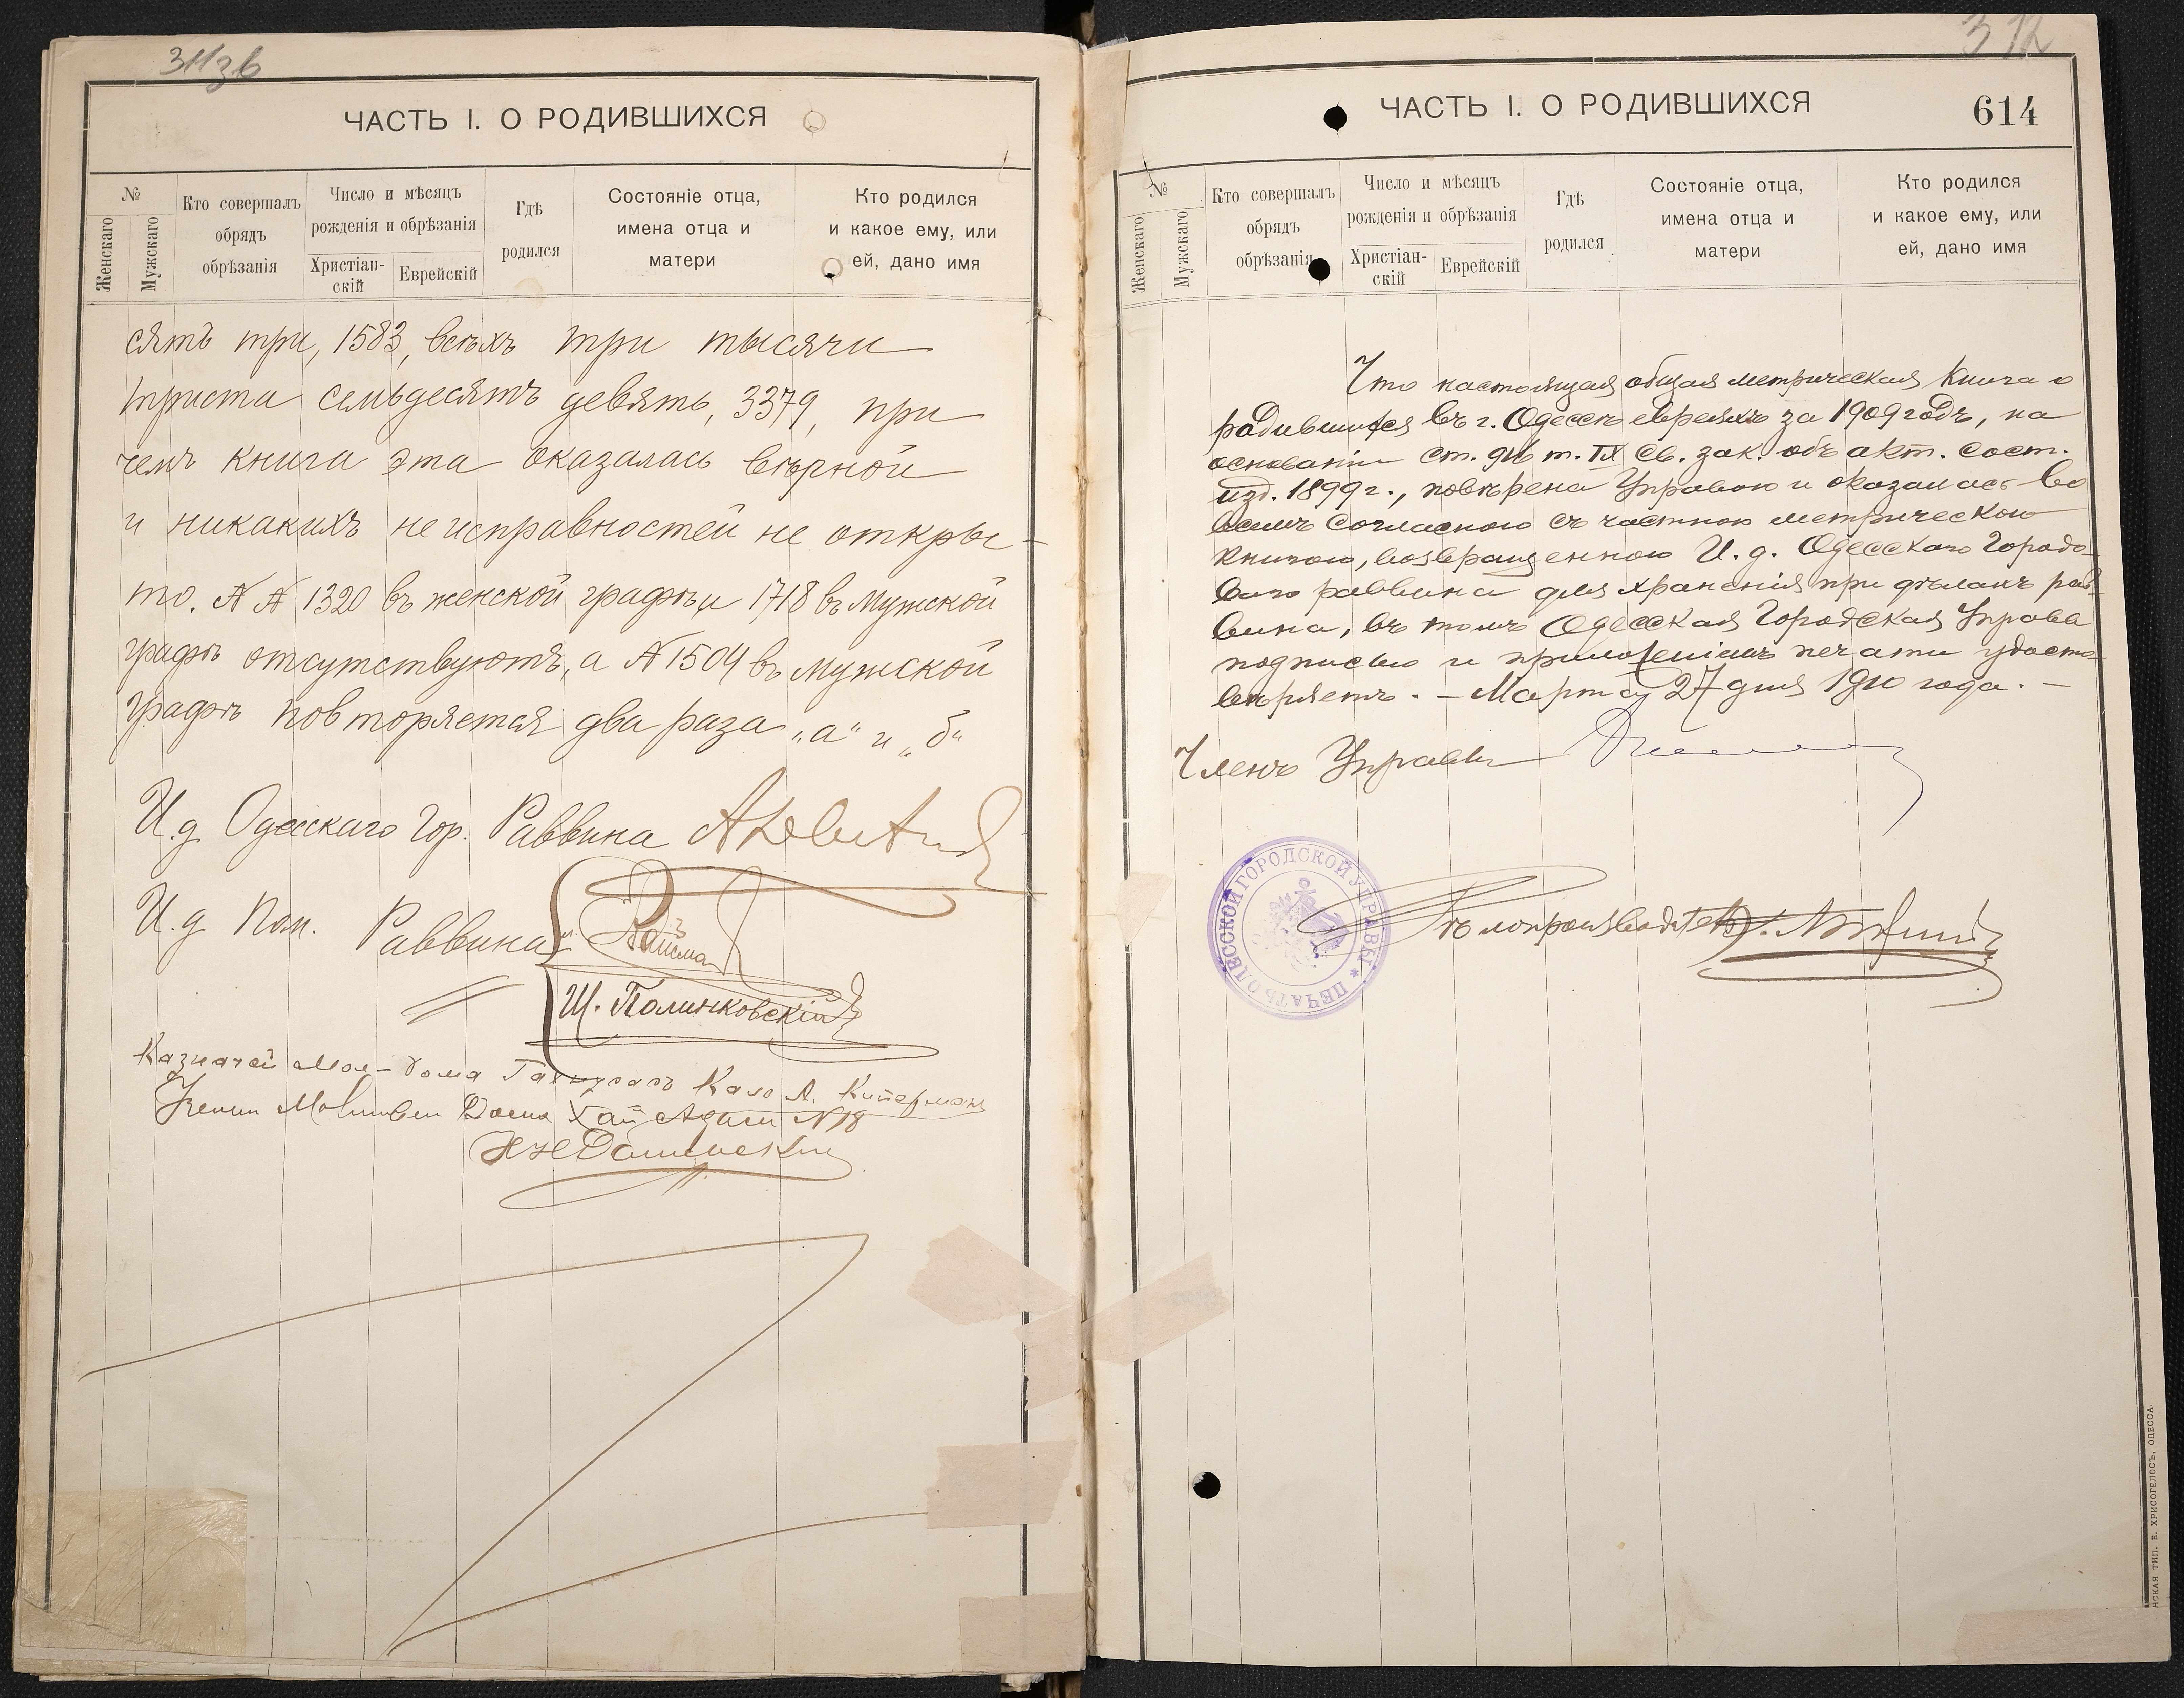 311 зв
ЧАСТЬ I. О РОДИВШИХСЯ
№
Женскаго
Мужскаго
Кто совершалъ
обрядъ
обрѣзанія
Число и мѣсяцъ
рожденія и обрѣзанія
Христіан-
скій
Еврейскій
Гдѣ
родился
Состояніе отца,
имена отца и
матери
Кто родился
и какое ему, или
ей, дано имя
сятъ три, 1583, всѣхъ три тысячи
триста семьдесятъ девять, 3379, при
чемъ книга эта оказалась вѣрной
и никакихъ неисправностей не откры-
то. №№ 1320 въ женской графѣ и 1718 въ мужской
графѣ отсутствуютъ, а №1504 въ мужской
графѣ повторяется два раза „а“ и „б“
И.д. Одесскаго Гор. Раввина
И.д. Пом. Раввина
Ш. Полинковскій
Казначей Мол-дома
ХНДашевскій
312
ЧАСТЬ I. О РОДИВШИХСЯ
614
№
Женскаго
Мужскаго
Кто совершалъ
обрядъ
обрѣзанія
Число и мѣсяцъ
рожденія и обрѣзанія
Христіан-
скій
Еврейскій
Гдѣ
родился
Состояніе отца,
имена отца и
матери
Кто родился
и какое ему, или
ей, дано имя
Что настоящая общая метрическая книга о
родившихся въ г. Одессѣ евреяхъ за 1909 годъ, на
основаніи ст. 916 т. IX св. зак. объ акт. сост.
изд. 1899 г., повѣрена Управою и оказалась во
всемъ согласною съ частною метрическою
книгою, возвращенною И.д. Одесскаго Городо-
ваго раввина для храненія при дѣлахъ рав-
вина, въ томъ Одесская Городская Управа
подписью и приложеніемъ печати удосто-
вѣряетъ. - Марта 27 дня 1910 года. -
Членъ Управы
Дѣлопроизводитель
ПЕЧАТЬ ОДЕССКОЙ ГОРОДСКОЙ УПРАВЫ *
ТИП. Е. ХРИСОГЕЛОСЪ, ОДЕССА.